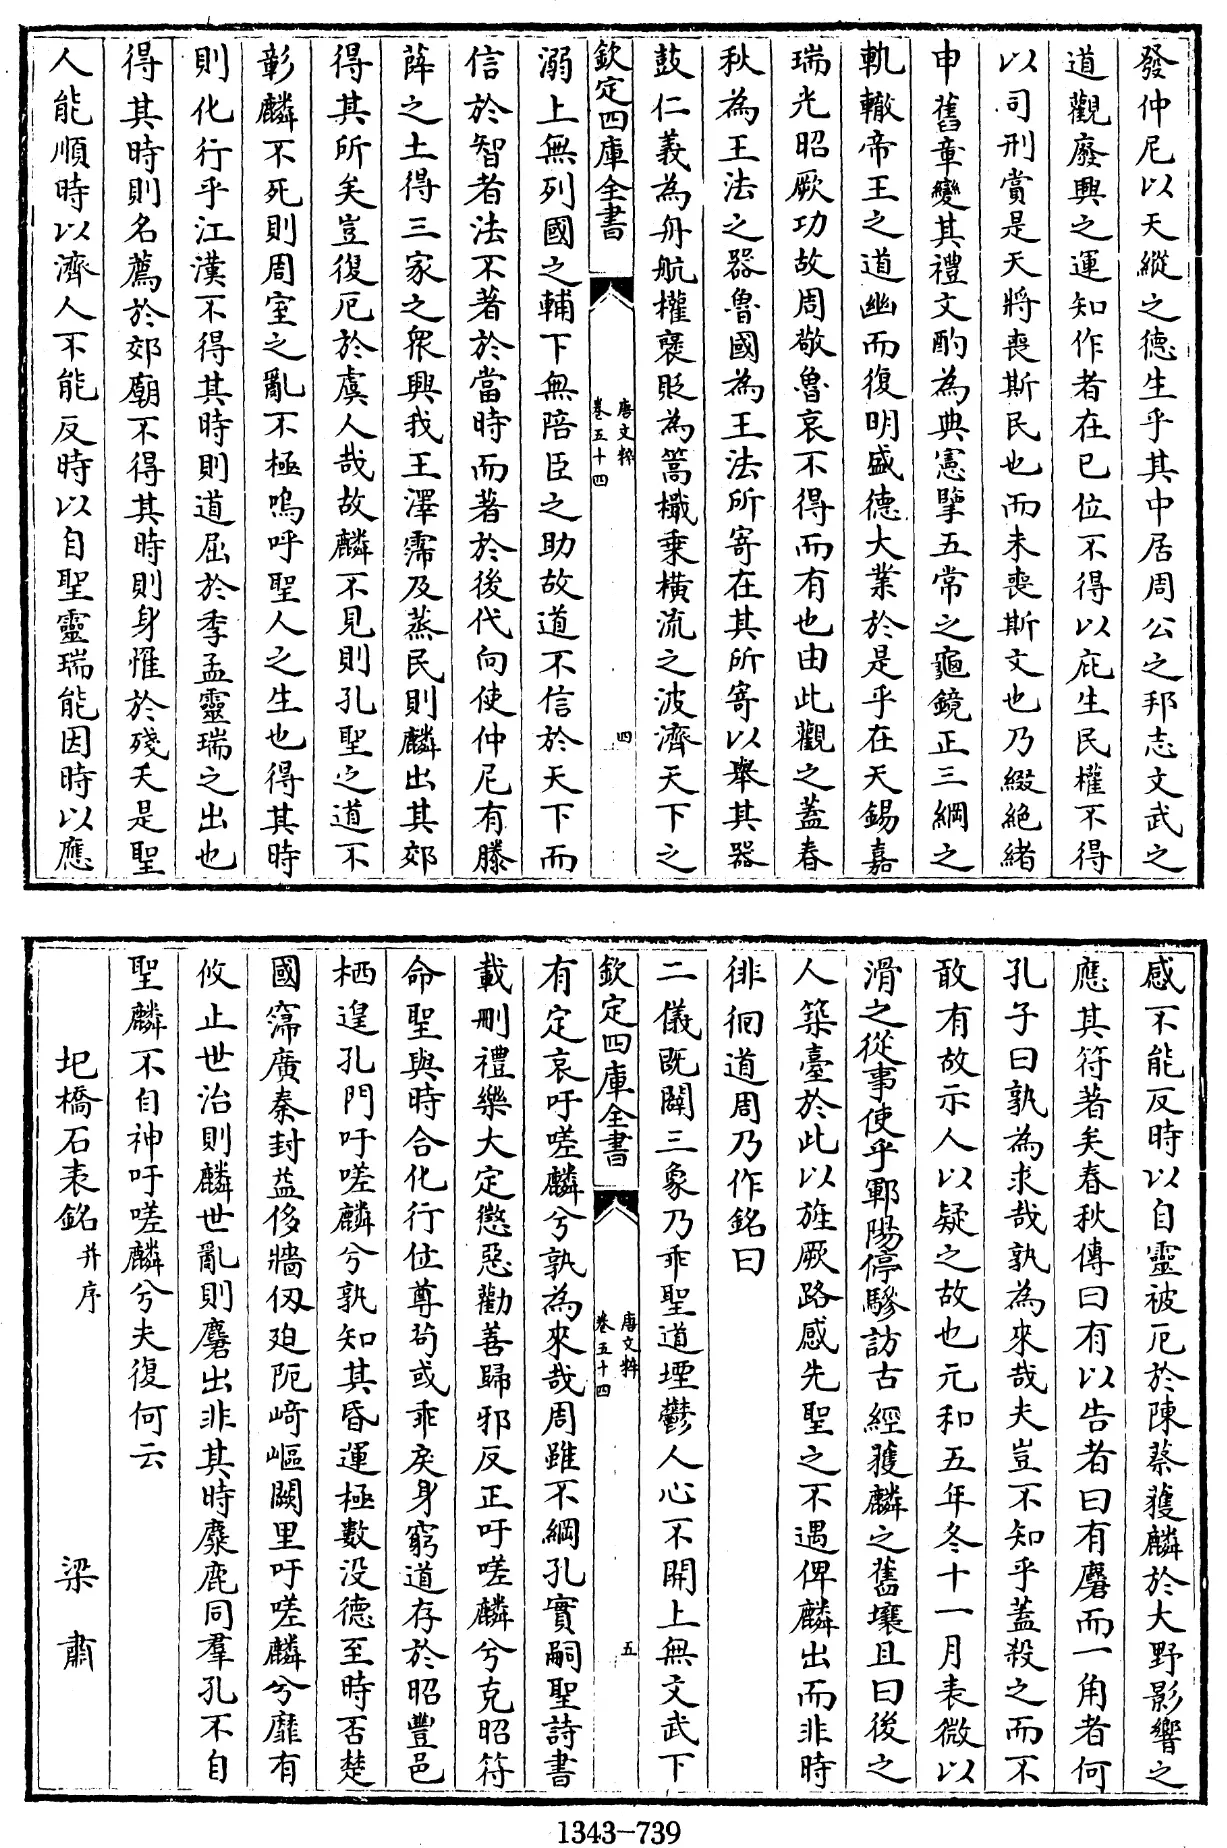 發仲尼以天縱之德生乎其中居周公之邦志文武之
道觀廢興之運知作者在已位不得以庇生民權不得
以司刑賞是天將喪斯民也而未喪斯文也乃綴絶緒
申舊章變其禮文酌為典憲擥五常之龜鏡正三綱之
軌轍帝王之道幽而復明盛德大業於是乎在天錫嘉
瑞光昭厥功故周敬魯哀不得而有也由此觀之蓋春
秋為王法之器魯國為王法所寄在其所寄以舉其器
鼓仁義為舟航權襃貶為篙檝乗橫流之波濟天下之
欽定四庫全書
唐文粹
卷五十四
四
溺上無列國之輔下無陪臣之助故道不信於天下而
信於智者法不著於當時而著於後代向使仲尼有滕
薛之土得三家之衆興我王澤霈及蒸民則麟出其郊
得其所矣豈復厄於虞人哉故麟不見則孔聖之道不
彰麟不死則周室之亂不極嗚呼聖人之生也得其時
則化行乎江漢不得其時則道屈於季孟靈瑞之出也
得其時則名薦於郊廟不得其時則身惟於殘夭是聖
人能順時以濟人不能反時以自聖靈瑞能因時以應
感不能反時以自靈被厄於陳蔡獲麟於大野影響之
應其符著矣春秋傳曰有以告者曰有麏而一角者何
孔子曰孰為來哉孰為來哉夫豈不知乎蓋殺之而不
敢有故示人以疑之故也元和五年冬十一月表微以
滑之從事使乎鄆陽停驂訪古經獲麟之舊壤且曰後之
人築臺於此以旌厥路感先聖之不遇俾麟出而非時
徘徊道周乃作銘曰
二儀既闢三象乃乖聖道堙鬱人心不開上無文武下
欽定四庫全書
唐文粹
卷五十四
五
有定哀吁嗟麟兮孰為來哉周雖不綱孔實嗣聖詩書
載刪禮樂大定懲惡勸善歸邪反正吁嗟麟兮克昭符
命聖與時合化行位尊苟或乖戾身窮道存於昭豐邑
栖遑孔門吁嗟麟兮孰知其昏運極數没德至時否楚
國霈廣秦封益侈牆仭廹阨﨑嶇闕里吁嗟麟兮靡有
攸止世治則麟世亂則麏出非其時麋鹿同羣孔不自
聖麟不自神吁嗟麟兮夫復何云
圯橋石表銘并序
梁肅
1343-739